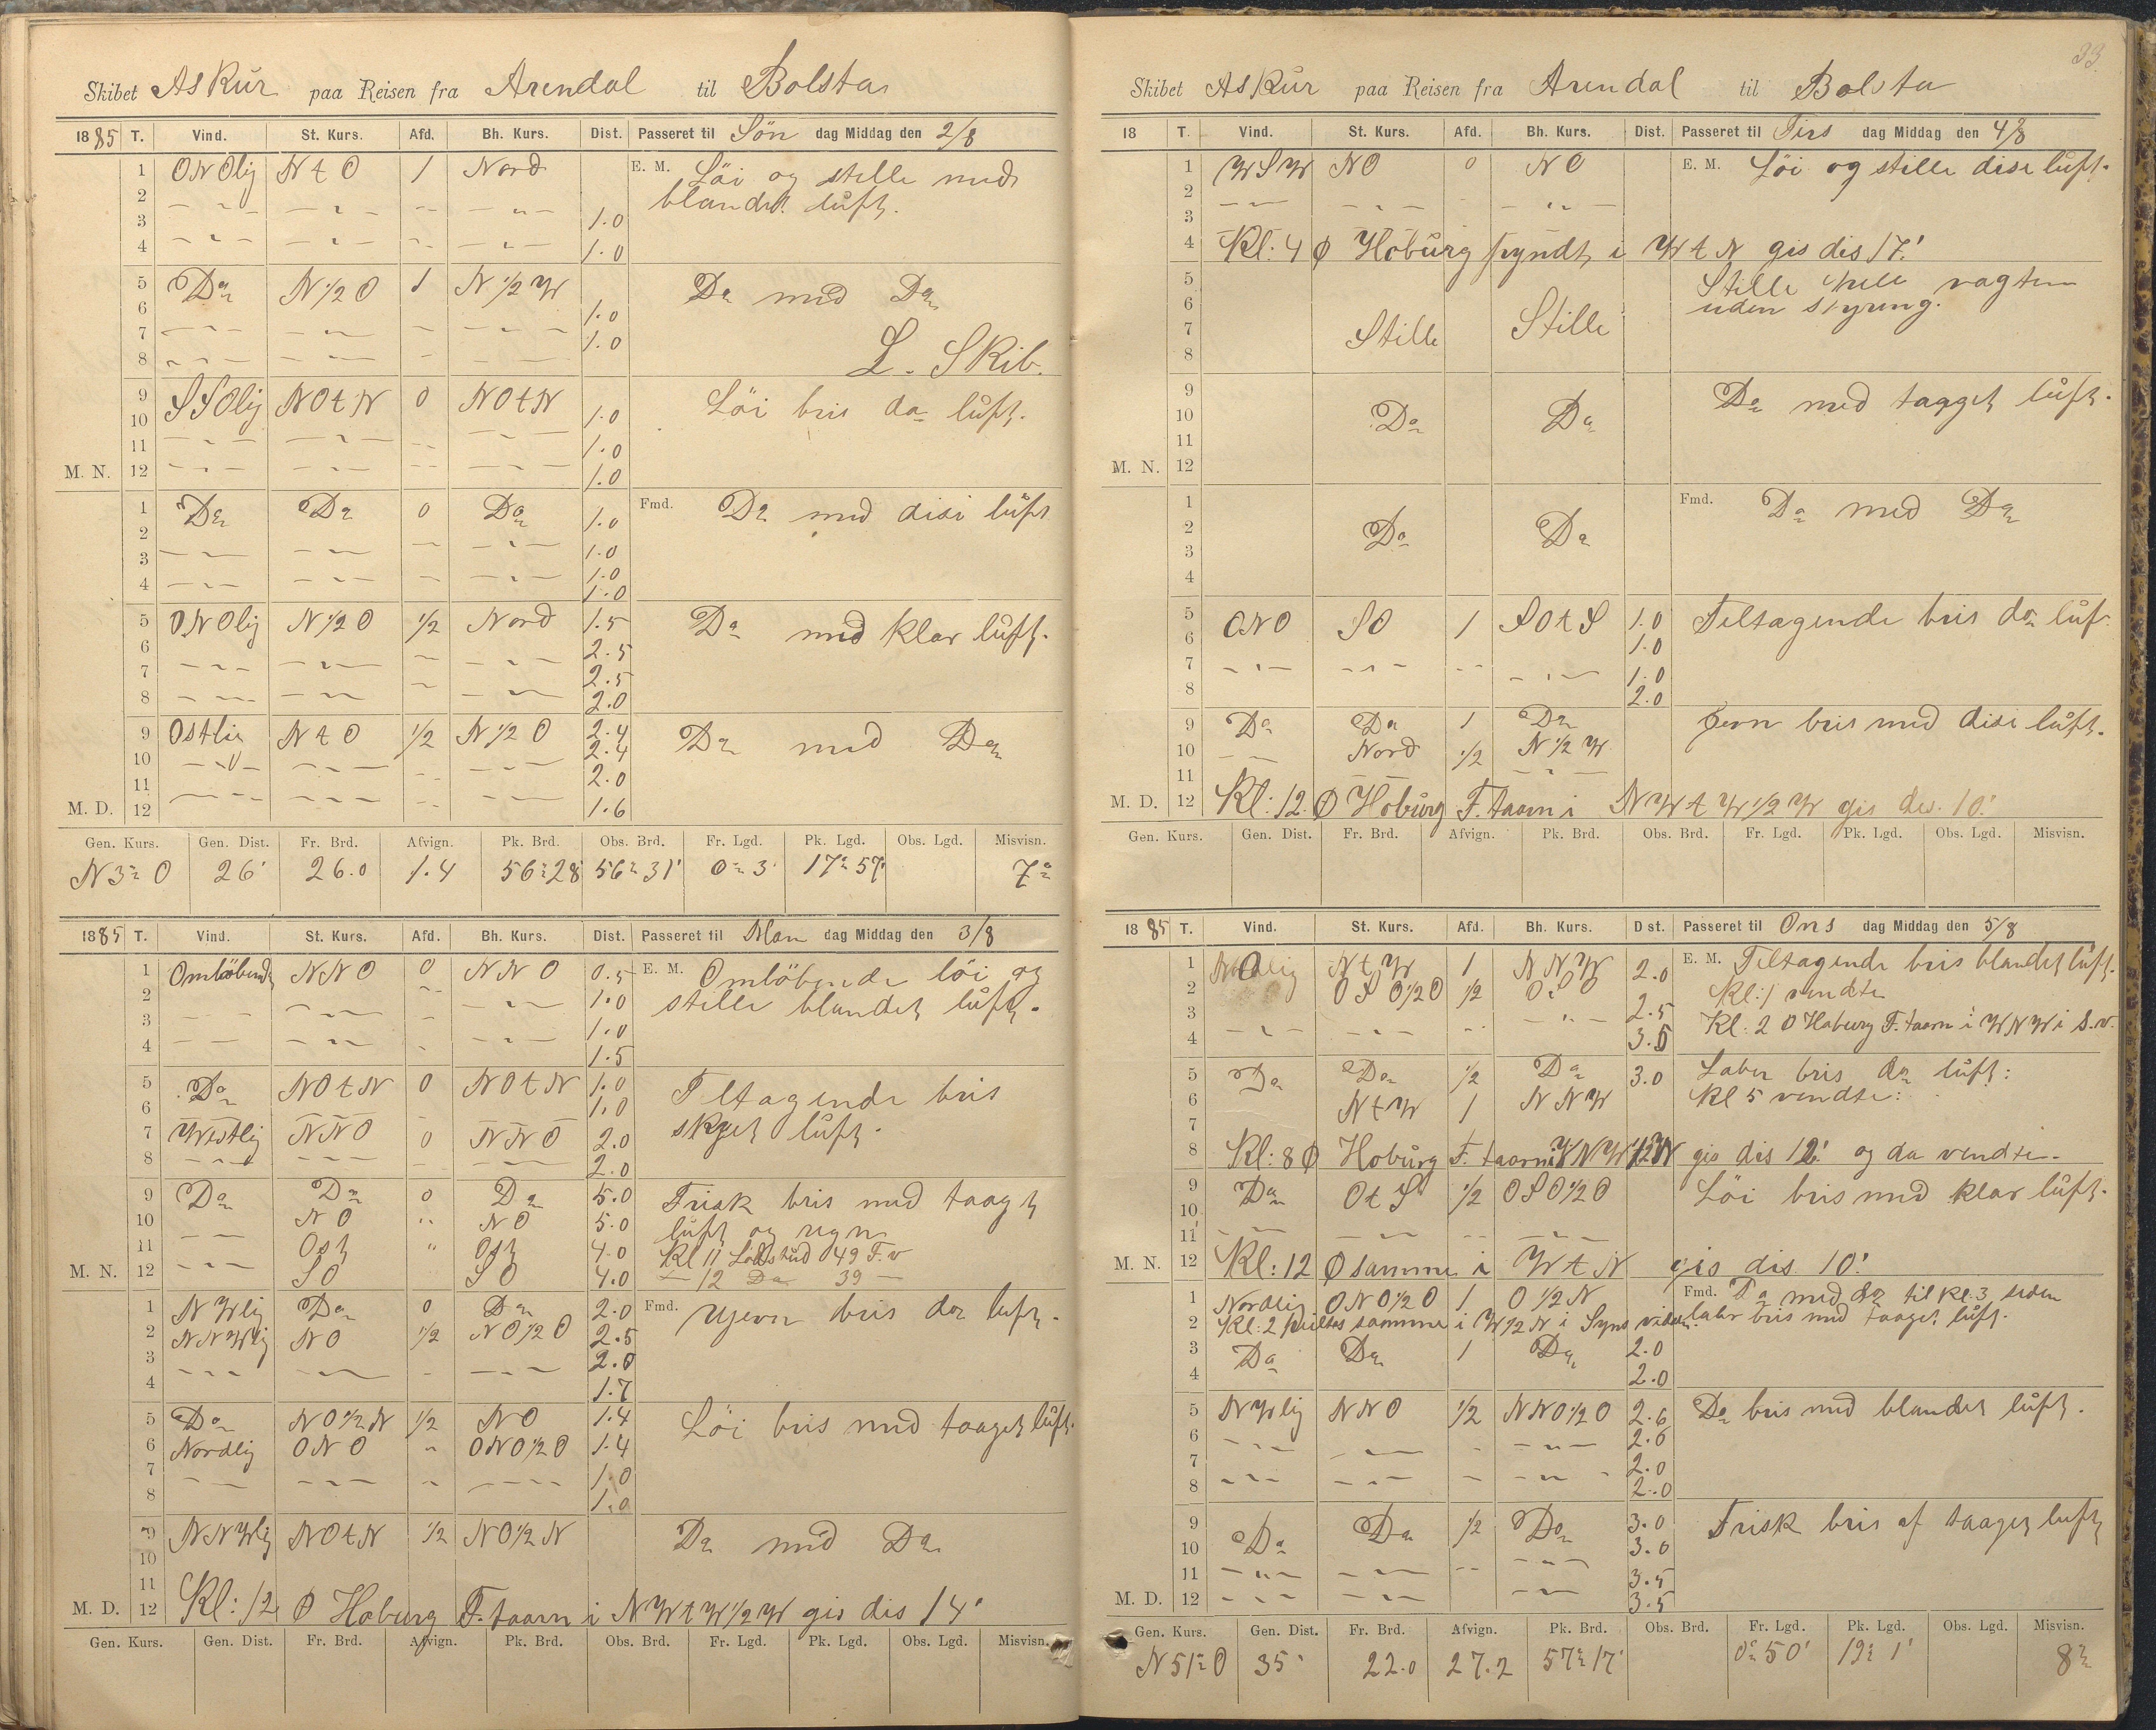 Skibet Askur paa Reisen fra Arendal til Bolsta
1885 T. Vind. St. Kurs. Afd. Bh. Kurs. Dist. Passeret til Sön dag Middag den 2/8
1 ONOlig N t O 1 Nord E. M. Löi og stille med
2 blandet luft.
3 1.0
4 1.0
5 Do N 1/2 O 1 N 1/2 W Do med Do
6 1.0
7 1.0
8 L. Skib.
9 SSOlig NOtN 0 NOtN Löi bris do luft.
10 1.0
11 1.0
M. N. 12 1.0
1 Do Do 0 Do 1.0 Fmd. Do med disi luft
2 1.0
3 1.0
4 1.0
5 ONOlig N 1/2 O 1/2 Nord 1.5 Do med klar luft.
6 2.5
7 2.5
8 2.0
9 Ostlig N t O 1/2 N 1/2 O 2.4 Do med Do
10 2.4
11 2.0
M. D. 12 1.6
Gen. Kurs. Gen. Dist. Fr. Brd. Afvign. Pk. Brd. Obs. Brd. Fr. Lgd. Pk. Lgd. Obs. Lgd. Misvisn.
N 3° O 26' 26.0 1.4 56° 28 56° 31' 0° 3' 17° 57' 7°
1885 T. Vind. St. Kurs. Afd. Bh. Kurs. Dist. Passeret til Man dag Middag den 3/8
1 Omlöbende NNO 0 NNO 0.5 E. M. Omlöbende löi og
2 1.0 stille blandet luft.
3 1.0
4 1.5
5 Do NOtN 0 NOtN 1.0 Teltagende bris
6 1.0 skyet luft.
7 Westlig NNO 0 NNO 2.0
8 2.0
9 Do Do 0 Do 5.0 Frisk bris med taaget
10 NO NO 5.0 luft og regn
11 Ost " Ost 4.0 Kl 11 Lodskud 49 F. v
M. N. 12 SO SO 4.0 — 12 Do 39 —
1 N Wlig Do 0 Do 2.0 Fmd. Ujevn bris do luft.
2 NNWlig NO 1/2 NO 1/2 O 2.5
3 2.0
4 1.7
5 Do NO 1/2 N 1/2 NO 1.4 Löi bris med taaget luft.
6 Nordlig ONO " ONO 1/2 O 1.4
7 1.0
8 1.0
9 NNWlig NOtN 1/2 NO 1/2 N Do med Do
10
11
M. D. 12 Kl: 12 Ø Hoburg F. taarn i NWtW 1/2 W gis dis 14'
Gen. Kurs. Gen. Dist. Fr. Brd. Afvign. Pk. Brd. Obs. Brd. Fr. Lgd. Pk. Lgd. Obs. Lgd. Misvisn.
33
Skibet Askur paa Reisen fra Arendal til Bolsta
18 T. Vind. St. Kurs. Afd. Bh. Kurs. Dist. Passeret til Tirs dag Middag den 4/8
1 WSW NO 0 NO E. M. Löi og stille disi luft.
2
3
4 Kl: 4 Ø Hoburg pyndt i W t N gis dis 17'
5 Stille hele vagten
6 uden styring.
7 Stille Stille
8
9 Do med tagget luft.
10 Do Do
11
M. N. 12
1 Fmd. Do med Do
2 Do Do
3
4
5 ONO SO 1 SOtS 1.0 Teltagende bris do luf
6 1.0
7 1.0
8 2.0
9 Do Do 1 Do Jevn bris med disi luft.
10 Nord 1/2 N 1/2 W
11
M. D. 12 Kl: 12. Ø Hoburg F. taarn i NWtW 1/2 W gis dis. 10'
Gen. Kurs. Gen. Dist. Fr. Brd. Afvign. Pk. Brd. Obs. Brd. Fr. Lgd. Pk. Lgd. Obs. Lgd. Misvisn.
1885 T. Vind. St. Kurs. Afd. Bh. Kurs. Dist. Passeret til Ons dag Middag den 5/8
1 N t W 1 NNW 2.0 E. M. Teltagende bris blandet luft.
2 OSO 1/2 O 1/2 Kl: 1 vendte
3 2.5 Kl: 2 Ø Hoburg F. taarn i WNW i S.v.
4 3.5
5 Do Do 1/2 Do 3.0 Laber bris do luft:
6 NtW 1 NNW Kl 5 vendte:
7
8 Kl: 8 Ø Hoburg F. taarn i gis dis 12' og da vendte.
9 Do OtS 1/2 OSO 1/2 O Löi bris med klar luft.
10
11
M. N. 12 Kl: 12 Ø samme i W t N gis dis 10'
1 Nordlig ONO 1/2 O 1 O 1/2 N Fmd. Do med do til kl: 3 siden
2 Kl: 2 peiltes samme i W 1/2 N i Syns vidden. labr bris med taaget luft.
3 Do Do 1 Do 2.0
4 2.0
5 N Wlig NNO 1/2 NNO 1/2 O 2.6 Do bris med blandet luft.
6 2.6
7 2.0
8 2.0
9 Do Do 1/2 Do 3.0 Frisk bris af taaget luft
10 3.0
11 3.5
M. D. 12 3.5
Gen. Kurs. Gen. Dist. Fr. Brd. Afvign. Pk. Brd. Obs. Brd. Fr. Lgd. Pk. Lgd. Obs. Lgd. Misvisn.
N 51° O 35' 22.0 27.2 57° 17' 0° 50' 19° 1' 8°